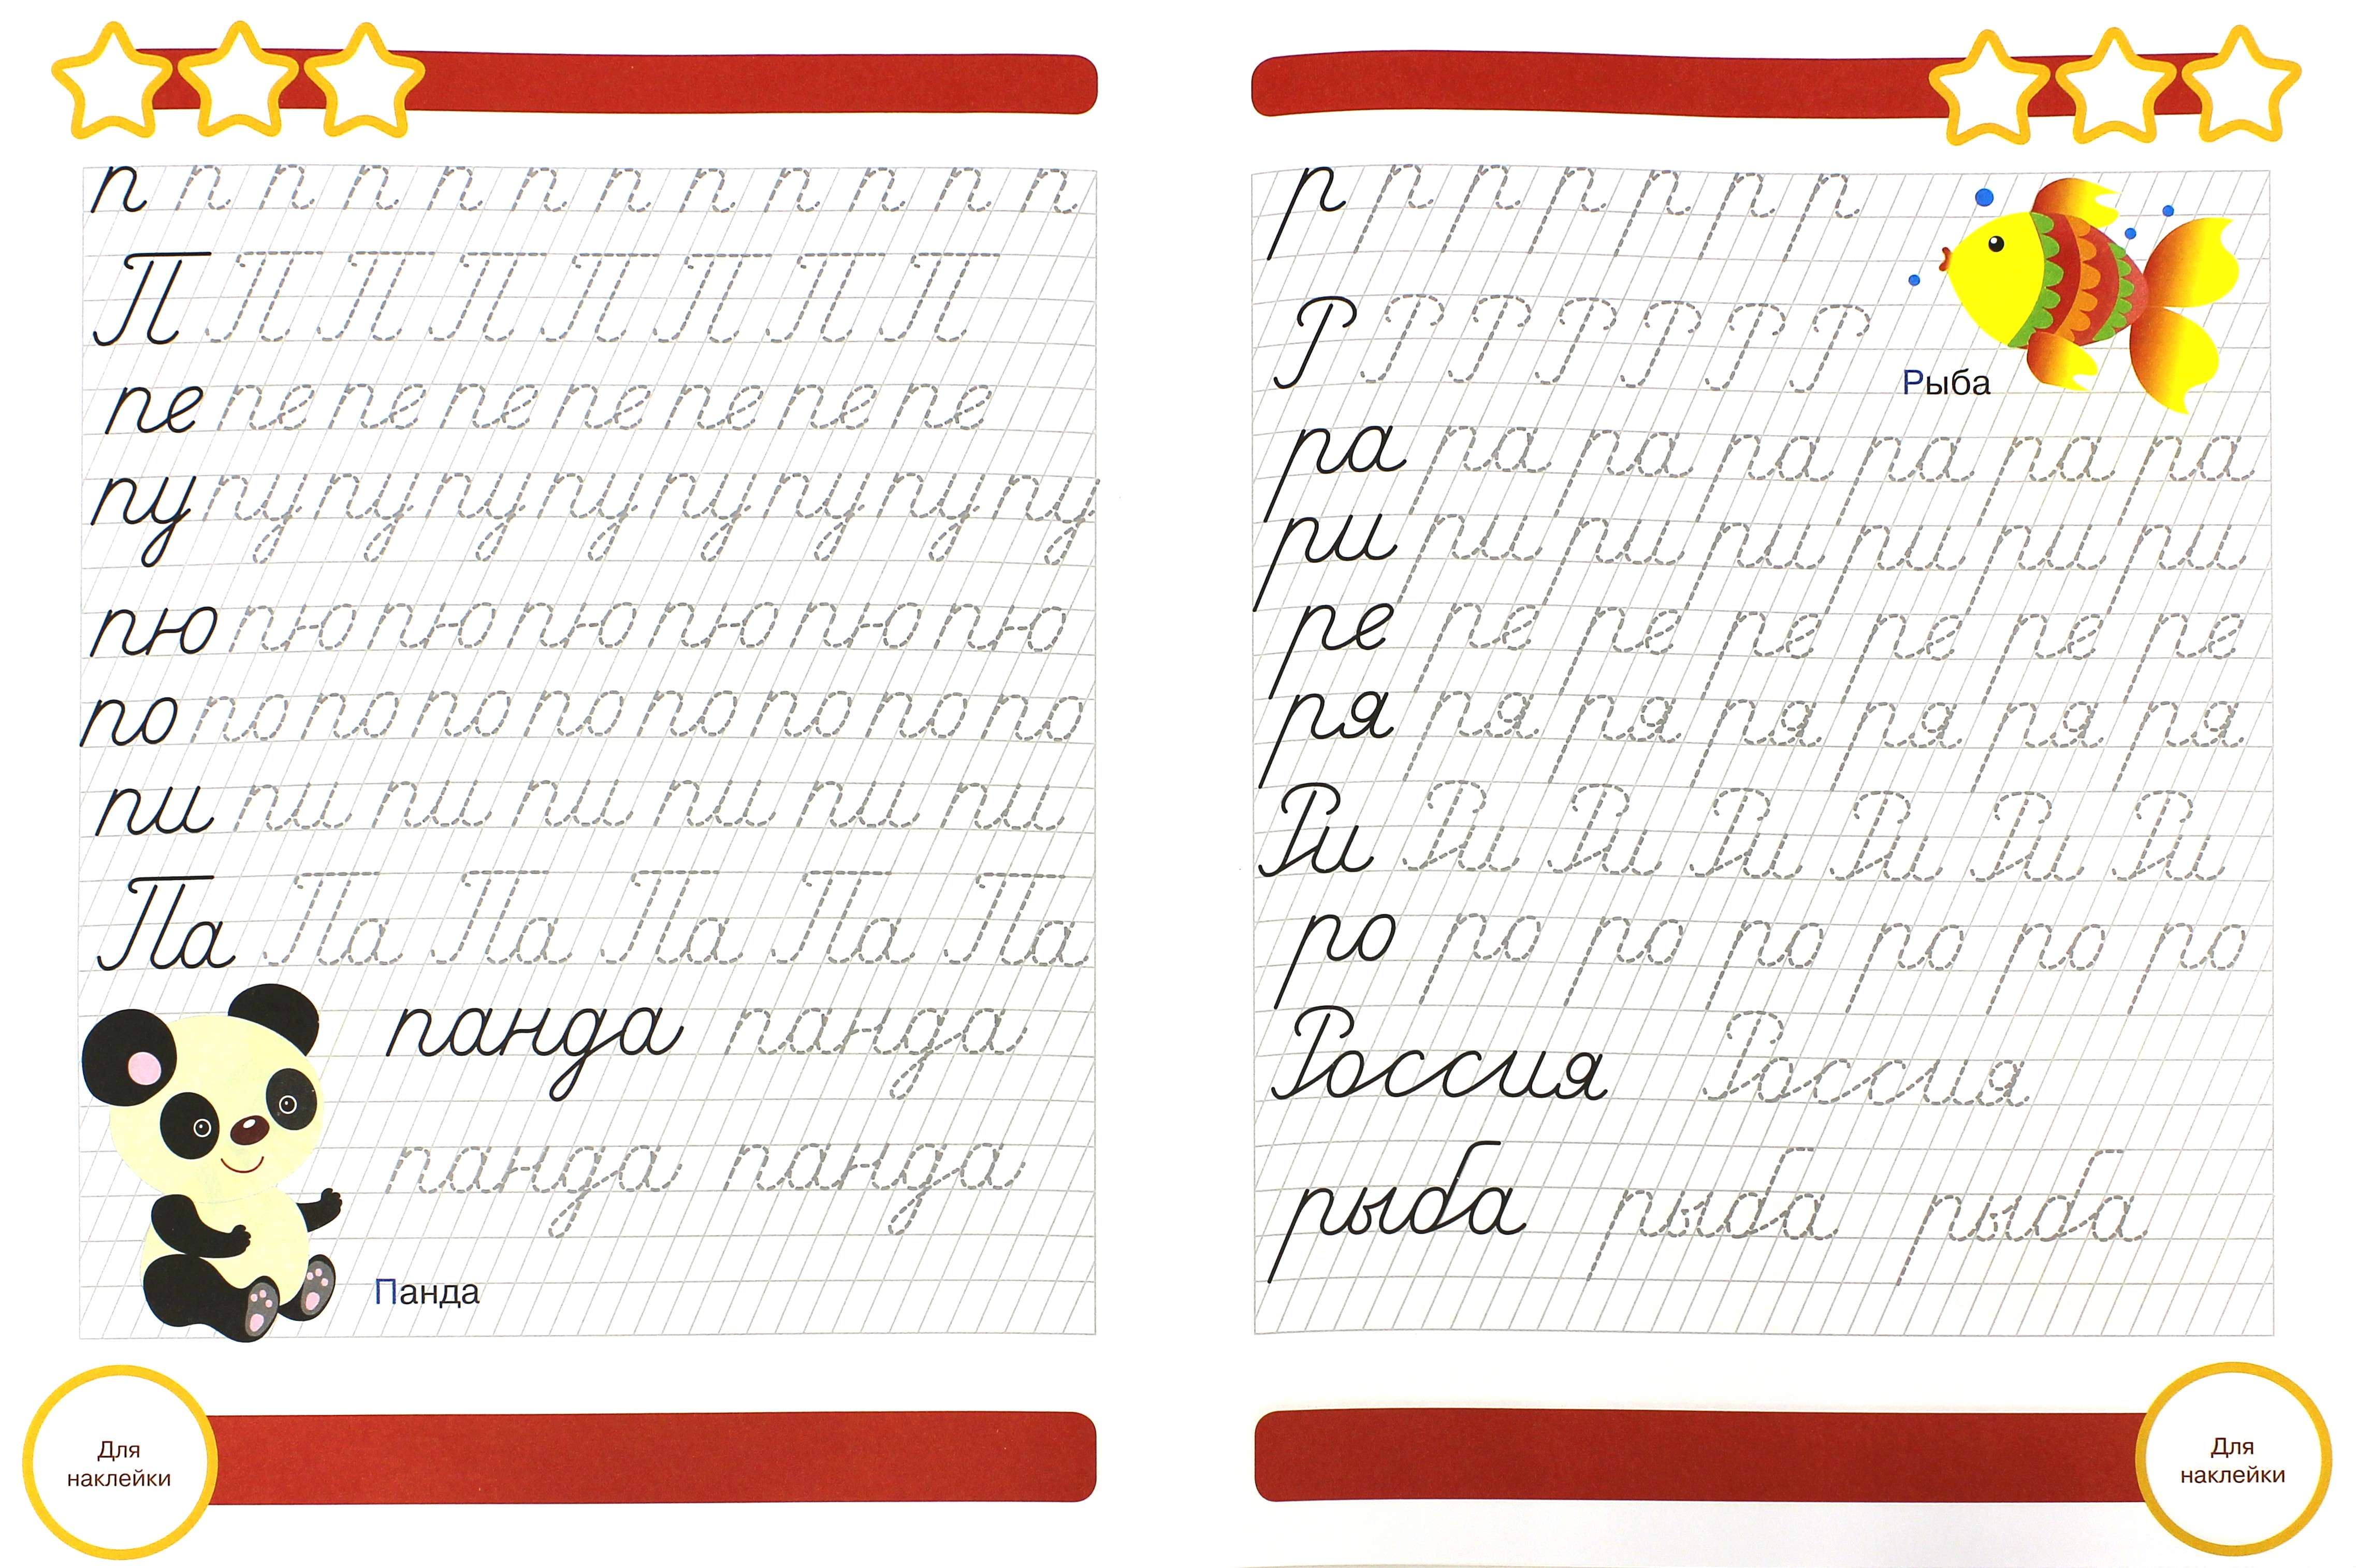 п п п п п п п п п п п п
П П П П П П П П
пе пе пе пе пе пе пе пе
пу пу пу пу пу пу пу пу пу
пю пю пю пю пю пю пю
по по по по по по по по по
пи пи пи пи пи пи пи
Па Па Па Па Па Па
панда панда
панда панда
Панда
Для
наклейки
р р р р р р р
Р Р Р Р Р Р Р
Рыба
ра ра ра ра ра ра ра
ри ри ри ри ри ри ри
ре ре ре ре ре ре ре
ря ря ря ря ря ря ря
Ри Ри Ри Ри Ри Ри Ри
ро ро ро ро ро ро ро
Россия Россия
рыба рыба рыба
Для
наклейки